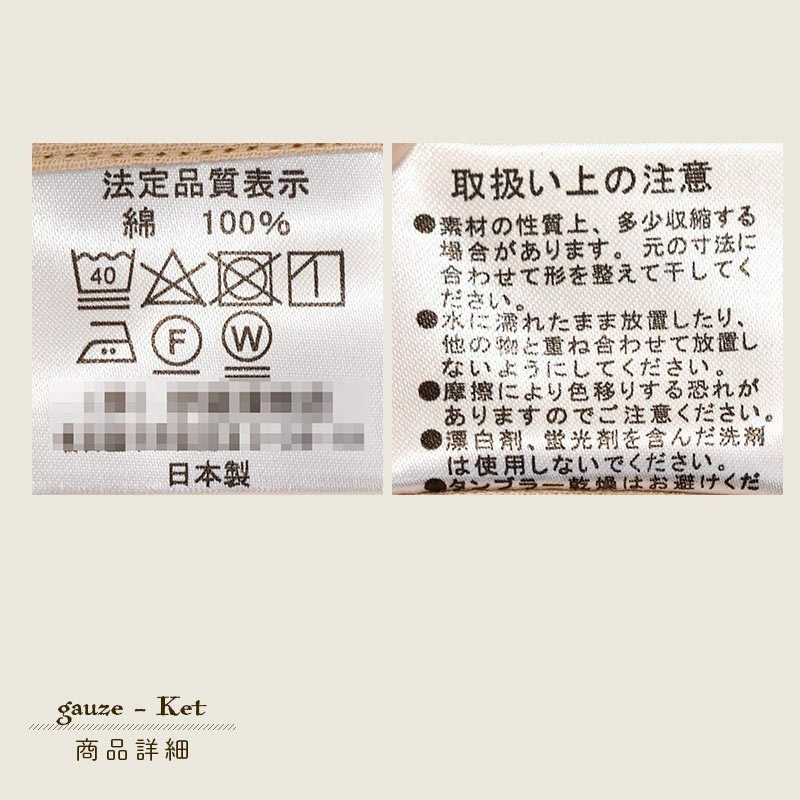 法定品質表示
綿 100%
40
F W
日本製
取扱い上の注意
●素材の性質上、多少収縮する
場合があります。元の寸法に
合わせて形を整えて干してく
ださい。
●水に濡れたまま放置したり、
他の物と重ね合わせて放置し
ないようにしてください。
●摩擦により色移りする恐れが
ありますのでご注意ください。
●漂白剤、蛍光剤を含んだ洗剤
は使用しないでください。
●タンブラー乾燥はお避けくだ
gauze - Ket
商品詳細